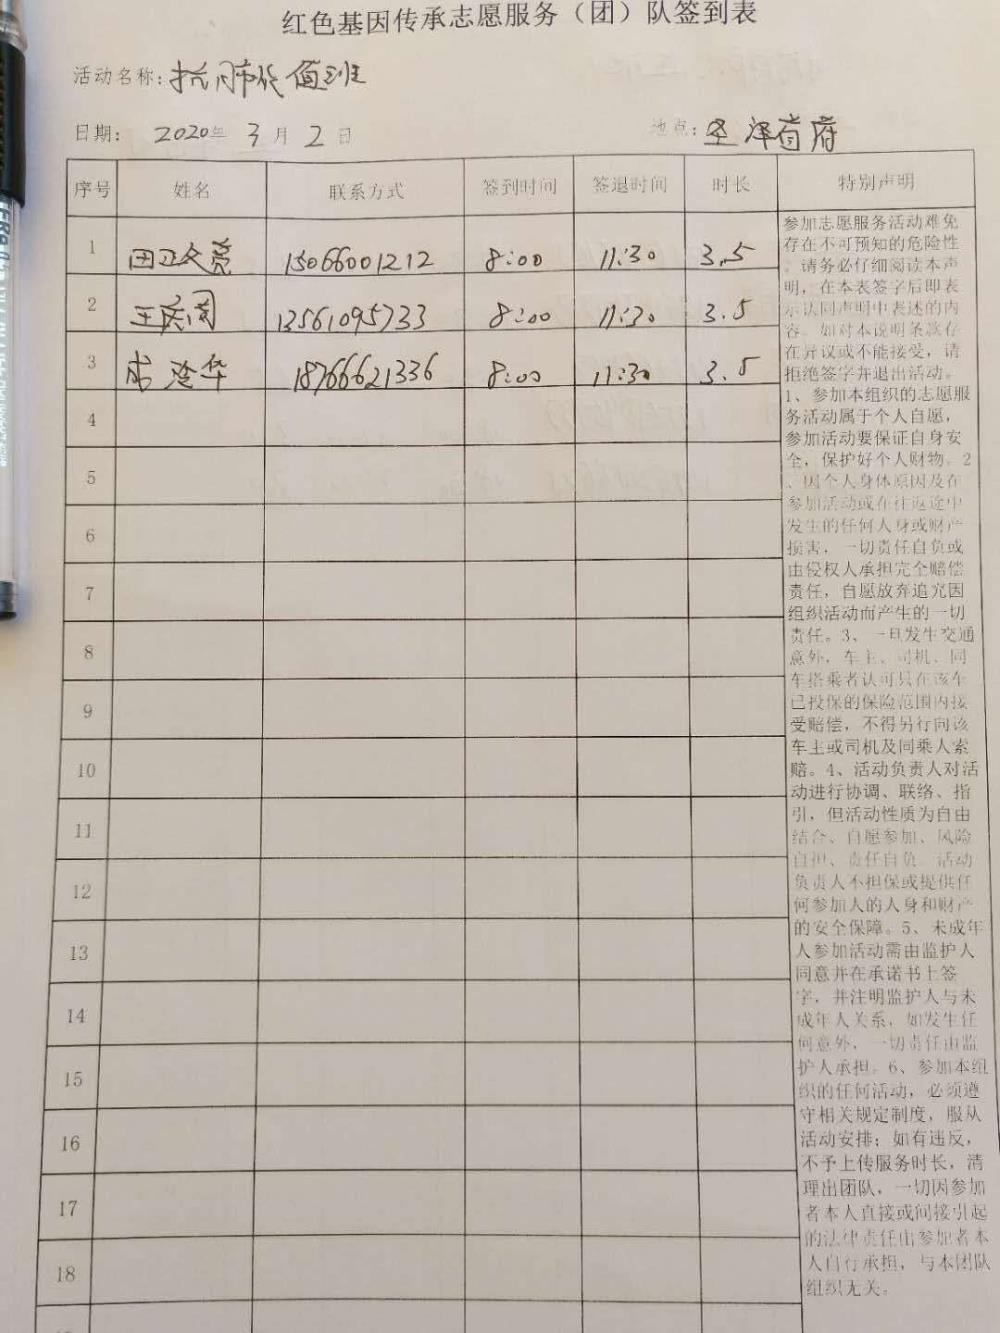 红色基因传承志愿服务（团）队签到表
活动名称：抗肺炎值班
日期： 2020年 3 月 2 日 地点：圣泽首府
序号 姓名 联系方式 签到时间 签退时间 时长 特别声明
1 15066001212 8:00 11:30 3.5
2 13561095733 8:00 11:30 3.5
3 18766621336 8:00 11:30 3.5
4
5
6
7
8
9
10
11
12
13
14
15
16
17
18
参加志愿服务活动难免
存在不可预知的危险性
，请务必仔细阅读本声
明，在本表签字后即表
示认同声明中表述的内
容。如对本说明条款存
在异议或不能接受，请
拒绝签字并退出活动。
1、参加本组织的志愿服
务活动属于个人自愿，
参加活动要保证自身安
全，保护好个人财物。2
、因个人身体原因及在
参加活动或在往返途中
发生的任何人身或财产
损害，一切责任自负或
由侵权人承担完全赔偿
责任，自愿放弃追究因
组织活动而产生的一切
责任。3、一旦发生交通
意外，车主、司机、同
车搭乘者认可只在该车
已投保的保险范围内接
受赔偿，不得另行向该
车主或司机及同乘人索
赔。4、活动负责人对活
动进行协调、联络、指
引，但活动性质为自由
结合、自愿参加、风险
自担、责任自负。活动
负责人不担保或提供任
何参加人的人身和财产
的安全保障。5、未成年
人参加活动需由监护人
同意并在承诺书上签
字，并注明监护人与未
成年人关系，如发生任
何意外，一切责任由监
护人承担。6、参加本组
织的任何活动，必须遵
守相关规定制度，服从
活动安排；如有违反，
不予上传服务时长，清
理出团队，一切因参加
者本人直接或间接引起
的法律责任由参加者本
人自行承担，与本团队
组织无关。